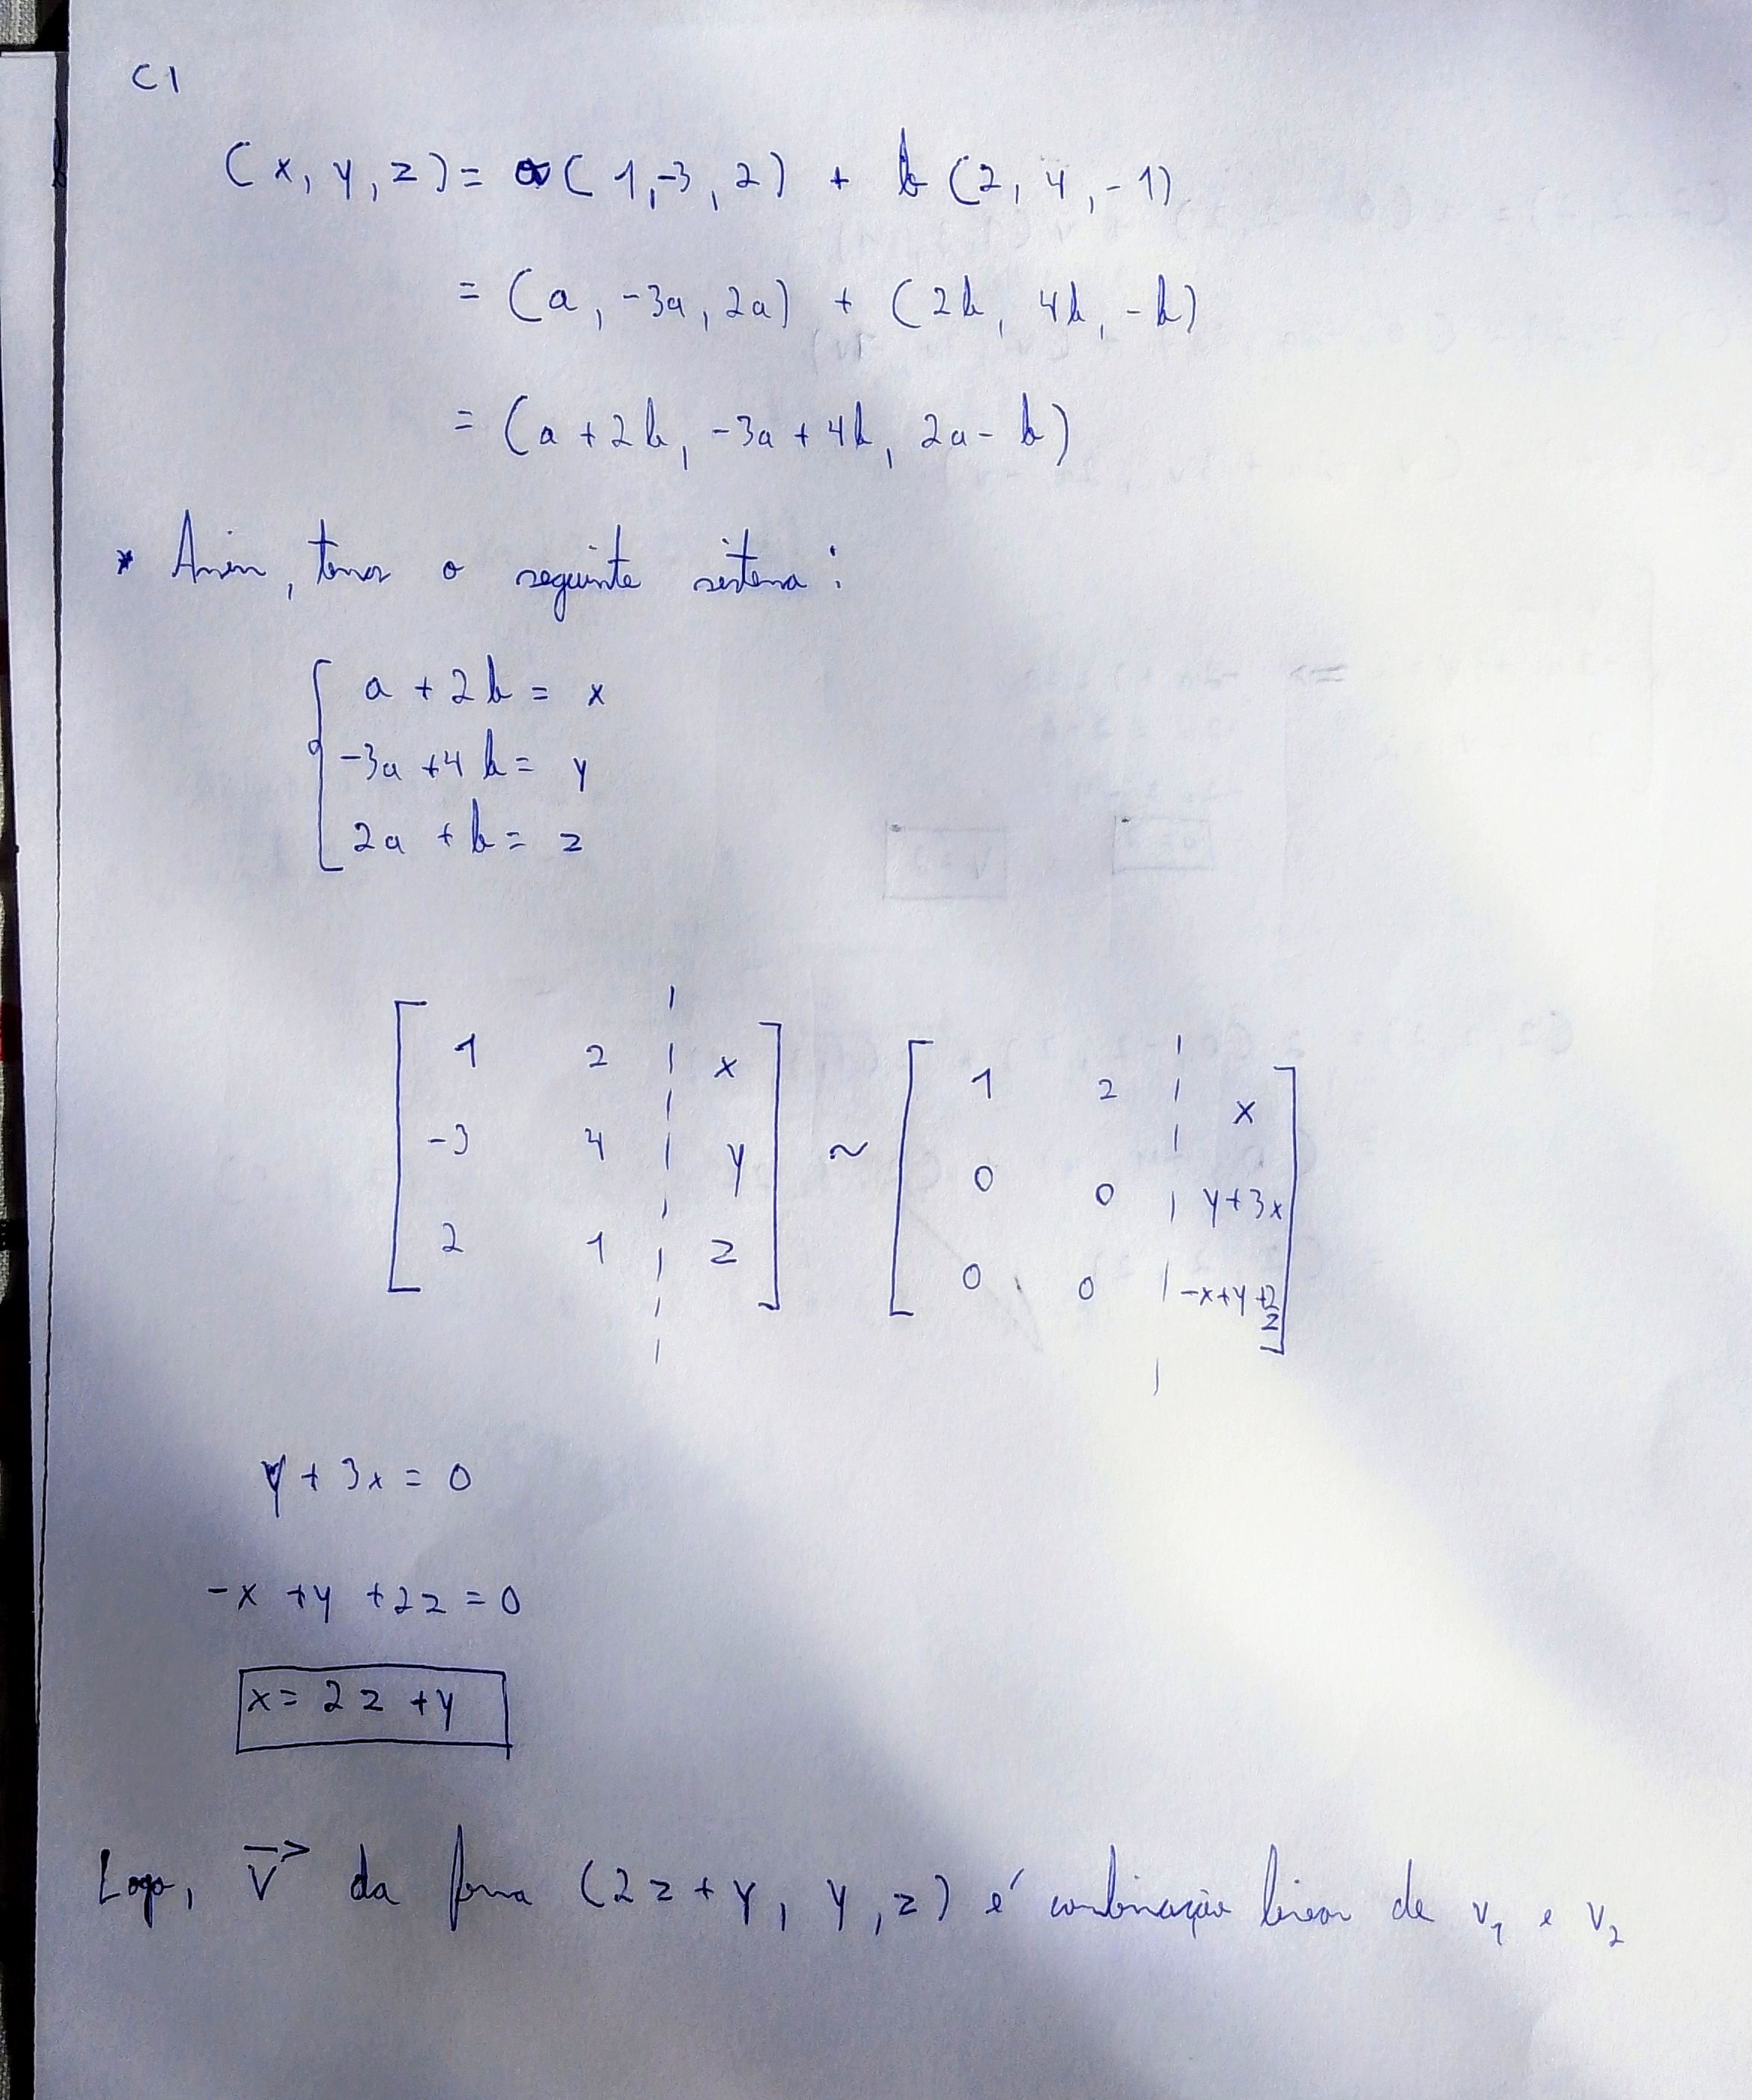 C1
(x, y, z) = a(1, -3, 2) + b(2, 4, -1)
= (a, -3a, 2a) + (2b, 4b, -b)
= (a + 2b, -3a + 4b, 2a - b)
* Assim, temos o seguinte sistema:
a + 2b = x
-3a + 4b = y
2a + b = z
1 2 | x ~ 1 2 | x
-3 4 | y 0 0 | y+3x
2 1 | z 0 0 | -x+y+2z
y + 3x = 0
-x + y + 2z = 0
x = 2z + y
Logo, v da forma (2z + y, y, z) é combinação linear de v1 e v2